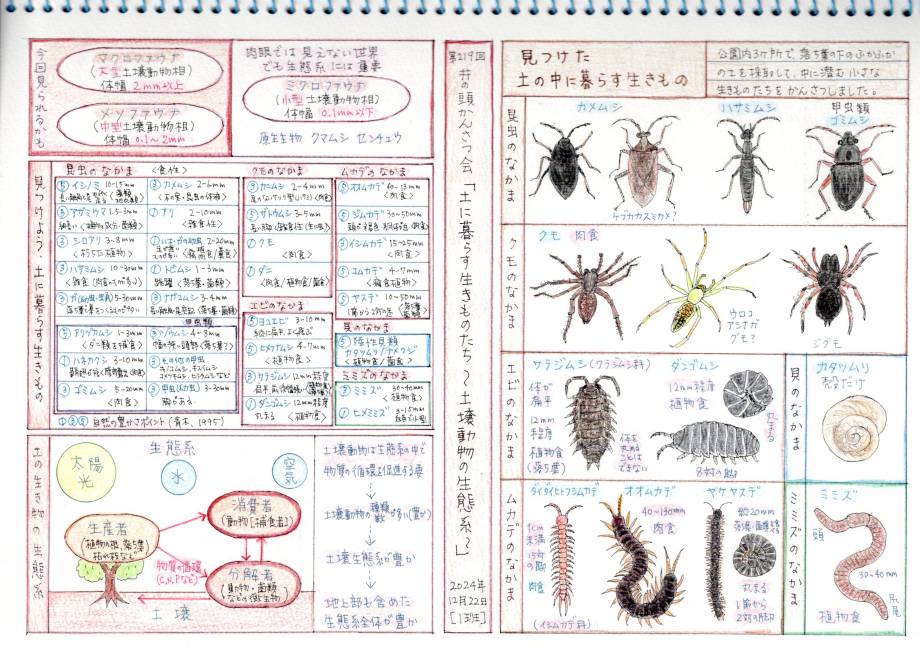 今回見られるかも
マクロファウナ
(大型土壌動物相)
体幅 2mm以上
メソファウナ
(中型土壌動物相)
体幅 0.1〜2mm
肉眼では見えない世界
でも生態系には重要
ミクロファウナ
(小型土壌動物相)
体幅 0.1mm以下
原生生物 クマムシ センチュウ
見つけよう・土に暮らす生きもの
昆虫のなかま <食性>
⑤イシノミ 10-15mm
③アザミウマ 1.5-3mm
③シロアリ 3-8mm
<朽ちた植物>
③ハサミムシ 10-30mm
③ガ(幼虫・虫員) 5-30mm
③カメムシ 2-6mm
①アリ 2-10mm
<雑食性>
①トビムシ 1-3mm
③ナガコムシ 3-4mm
甲虫類
⑤アリヅカムシ 1-3mm
<ダニ類を捕食>
①ハネカクシ 3-10mm
③ゴミムシ 5-20mm
<肉食>
③ゾウムシ 4-8mm
③その他の甲虫
③甲虫(幼虫) 3-30mm
胸がある
①③⑤ 自然の豊かさポイント(青木, 1995)
クモのなかま
③カニムシ 2-4mm
⑤ザトウムシ 3-5mm
①クモ
<肉食>
①ダニ
<肉食/植物食/菌食>
エビのなかま
⑤ヨコエビ 3-10mm
⑤ヒメナナムシ 4-7mm
<植物食>
③ワラジムシ 12mm程度
①ダンゴムシ 12mm程度
丸まる <植物食>
ムカデのなかま
⑤オオムカデ 40-130mm
<肉食>
⑤ジムカデ 30-50mm
③イシムカデ 15-25mm
<肉食>
⑤コムカデ 4-7mm
⑤ヤスデ 10-50mm
貝のなかま
⑤陸性貝類
カタツムリ/ナメクジ
<植物食/菌食>
ミミズのなかま
③ミミズ 30-40mm
<植物食>
①ヒメミミズ 3-15mm
土の生き物の生態系
生態系
太陽光
水
空気
生産者
(植物の根, 落ち葉
枯れ枝など)
消費者
(動物[捕食者])
物質の循環
(C,N,Pなど)
分解者
(動物・菌類
などの微生物)
土壌
土壌動物は生態系の中で
物質の循環を促進する要
土壌動物の種類数が多い(豊か)
土壌生態系が豊か
地上部も含めた
生態系全体が豊か
第219回
井の頭かんさつ会「土に暮らす生きものたち〜土壌動物の生態系〜」
2024年
12月22日
見つけた
土の中に暮らす生きもの
公園内3ヶ所で、落ち葉の下のふかふか
の土を採取して、中に潜む小さな
生きものたちをかんさつしました。
昆虫のなかま
カメムシ
ケブカカスミカメ?
ハサミムシ
甲虫類
ゴミムシ
クモのなかま
クモ 肉食
ウロコ
アシナガ
グモ?
ジグモ
エビのなかま
ワラジムシ(ワラジムシ科)
体が
扁平
12mm
程度
植物食
(落ち葉)
体を
丸める
ことは
できない
ダンゴムシ
12mm程度
植物食
丸まる
8対の脚
貝のなかま
カタツムリ
殻だけ
ムカデのなかま
ダイダイヒトフシムカデ
1cm
未満
15対
の脚
肉食
(イシムカデ科)
オオムカデ
40〜130mm
肉食
ヤケヤスデ
約20mm
丸まる
1節から
2対の脚
ミミズのなかま
ミミズ
頭
30-40mm
尻尾
植物食